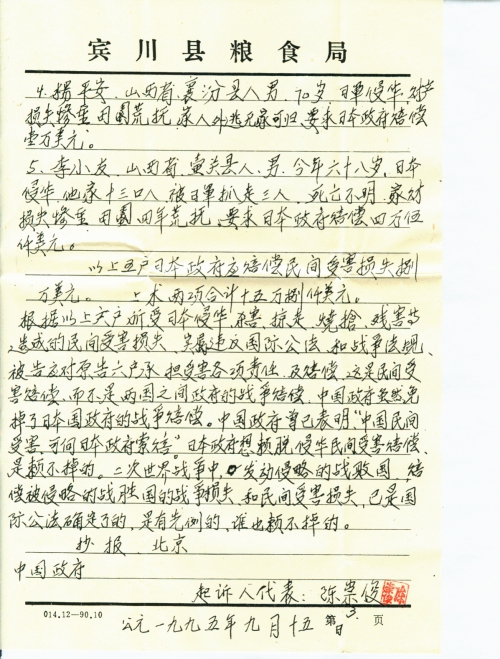 宾川县粮食局
4. 杨平安、山西省、襄汾县人男、70岁 日軍侵华、财产
损失惨重 田園荒抚、家人外逃无家可归、要求日本政府賠偿
壹万美元。
5、李小友、山西省、壶关县人、男、今年六十八岁、日本
侵华、他家十三口人、被日軍抓走三人、死亡不明、家材
损失惨重、田園四年荒抚、要求日本政府賠偿四万伍
仟美元。
以上五户日本政府应賠偿民间受害损失捌
万美元。 上术两项合计十五万捌仟美元。
根据以上六户所受日本侵华、杀害、掠走、燒搶、残害等
造成的民间受害损失、实属违反国际公法、和战争法规、
被告应对原告六户承担受害各项责任、及賠偿、这是民间受
害賠偿、而不是两国之间政府的战争賠偿、中国政府虽然免
掉了日本国政府的战争賠偿。中国政府曾已表明“中国民间
受害、可向日本政府索賠”。日本政府想摆脱侵华民间受害賠偿、
是赖不掉的。二次世界战争中、发动侵略的战败国、賠
偿被侵略的战胜国的战争损失、和民间受害损失、已是国
际公法确定了的、是有先例的、谁也赖不掉的。
抄报、北京
中国政府
起诉人代表：陈崇俊
014.12—90.10 第 3 页
公元一九九五年九月十五日